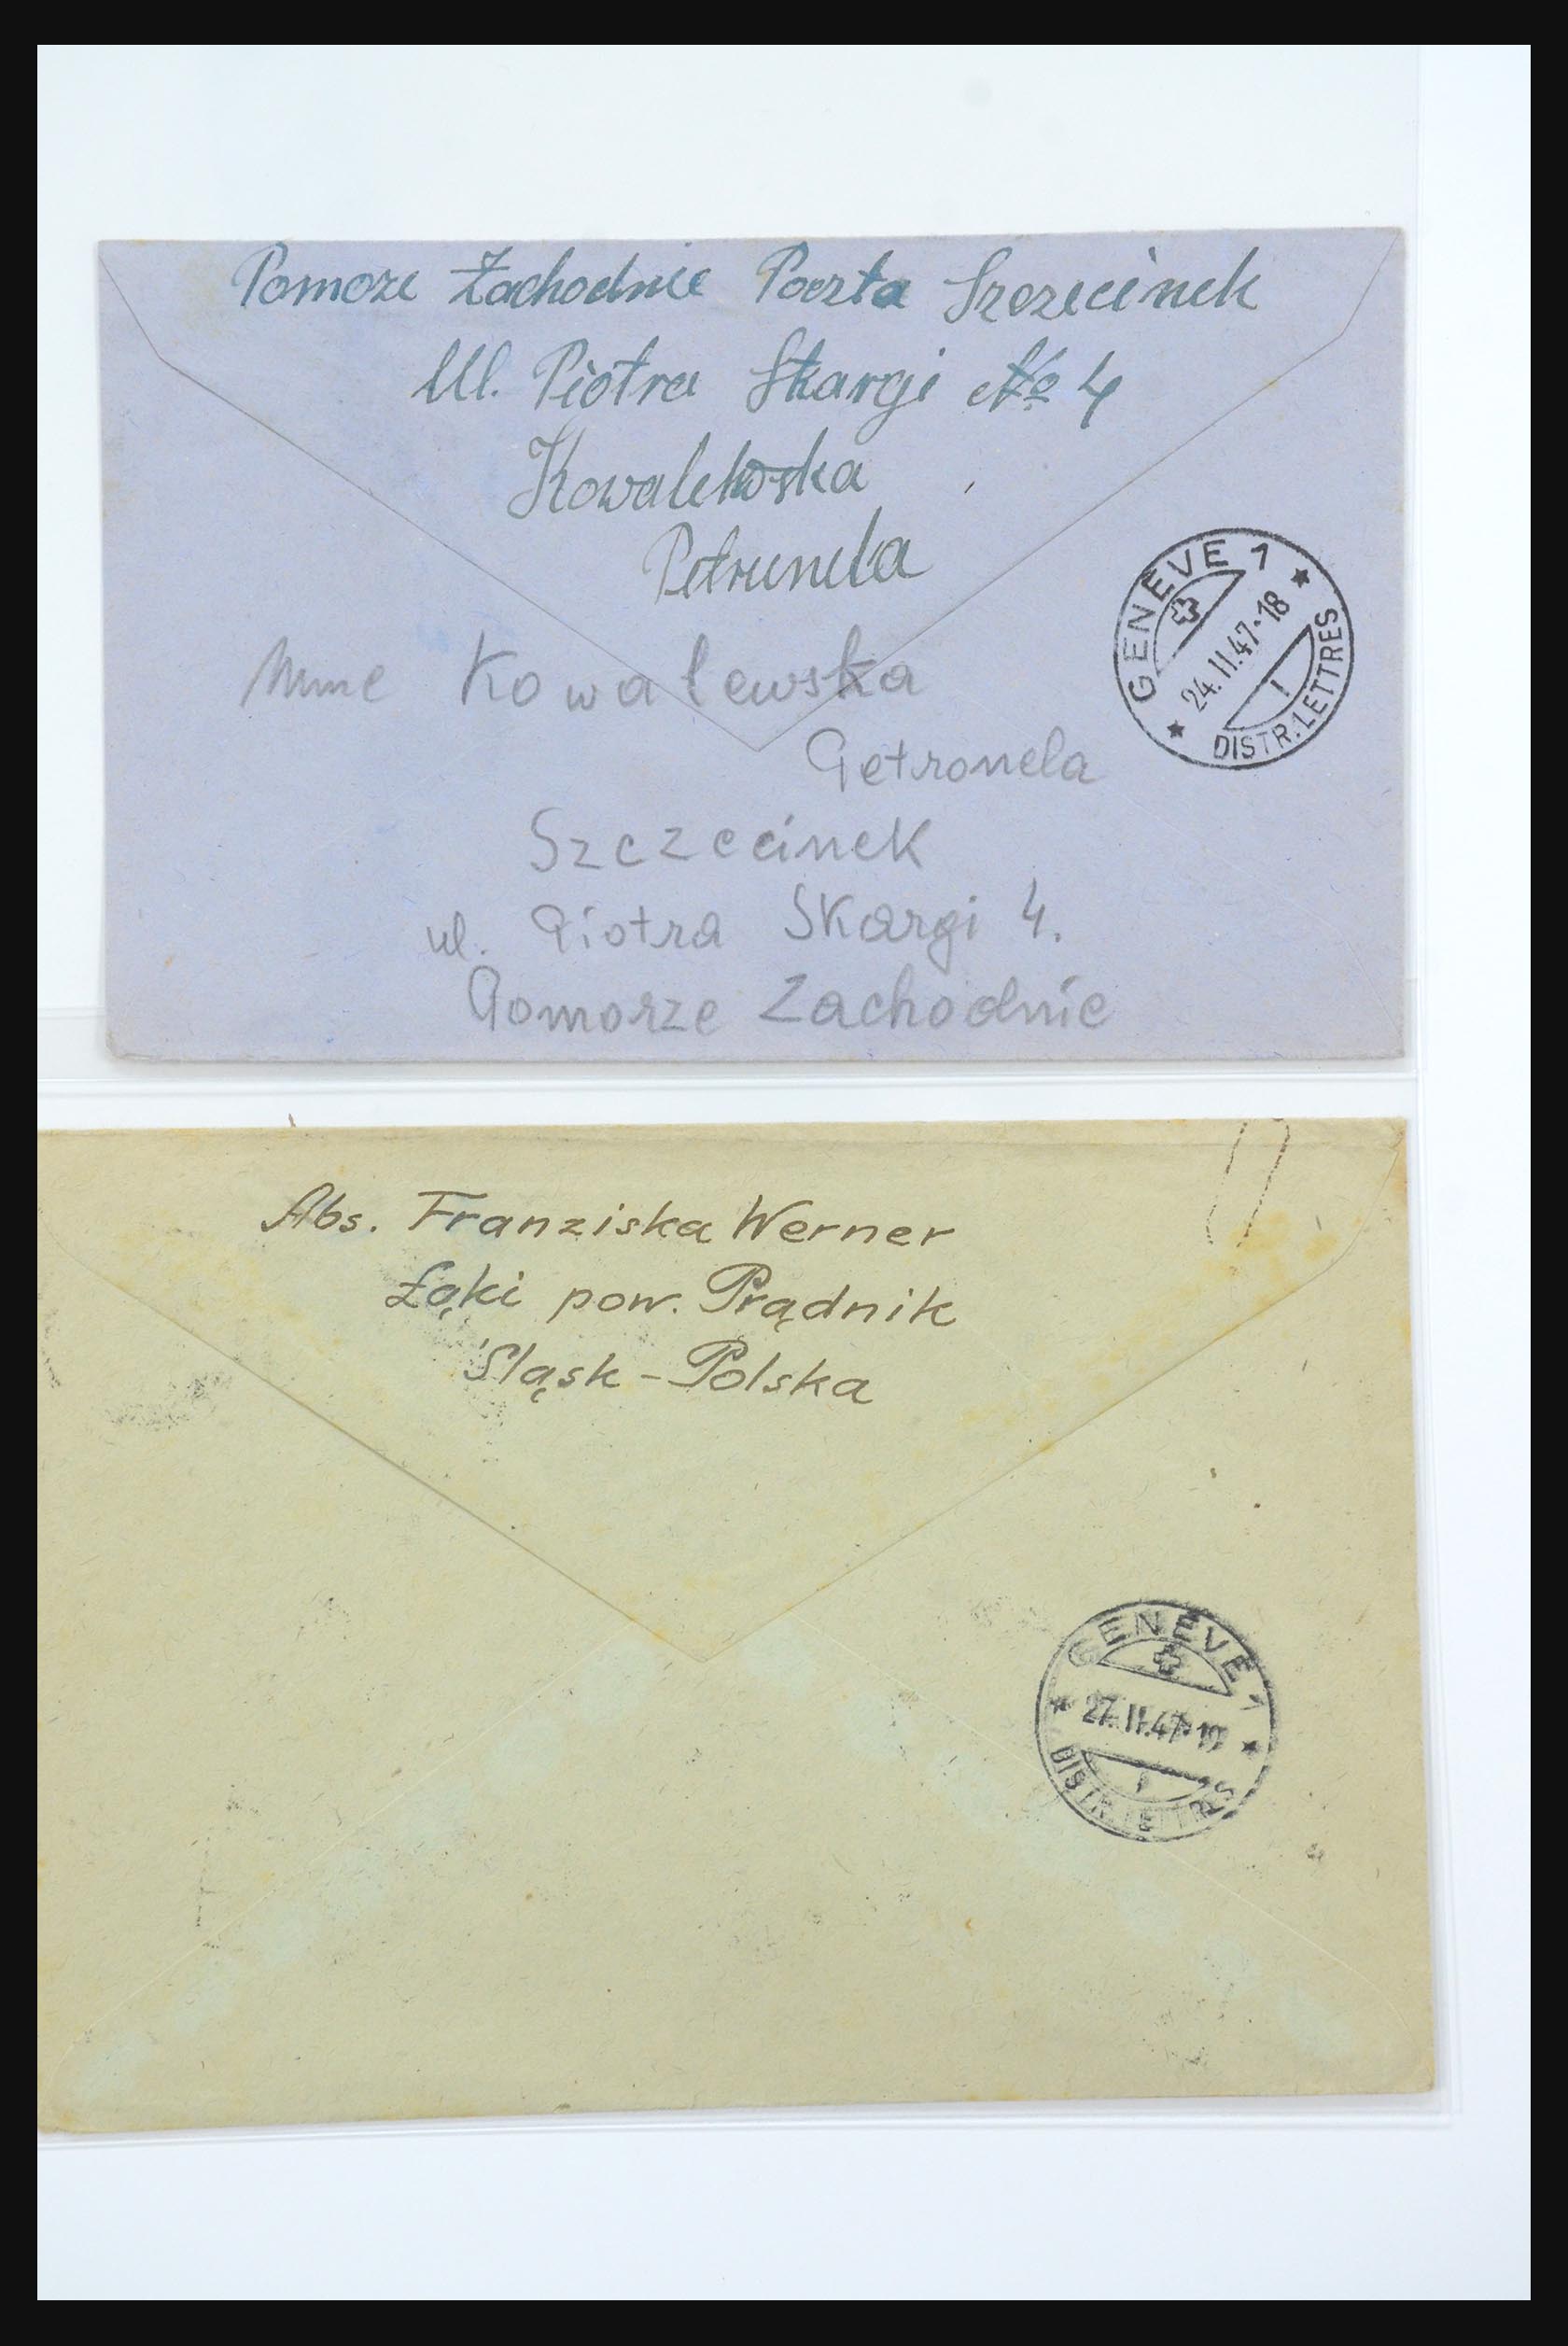 Pomoze Zachodnie Poczta Szczecinek
Ul. Piotra Skargi № 4
Kowalewska
Petrunela
GENÈVE 1
24.II.47-18
1
DISTR. LETTRES
Mme Kowalewska
Petronela
Szczecinek
ul. Piotra Skargi 4.
Pomorze Zachodnie
Abs. Franziska Werner
Łąki pow. Prądnik
Śląsk - Polska
GENÈVE 1
27.II.47-19
DISTR. LETTRES